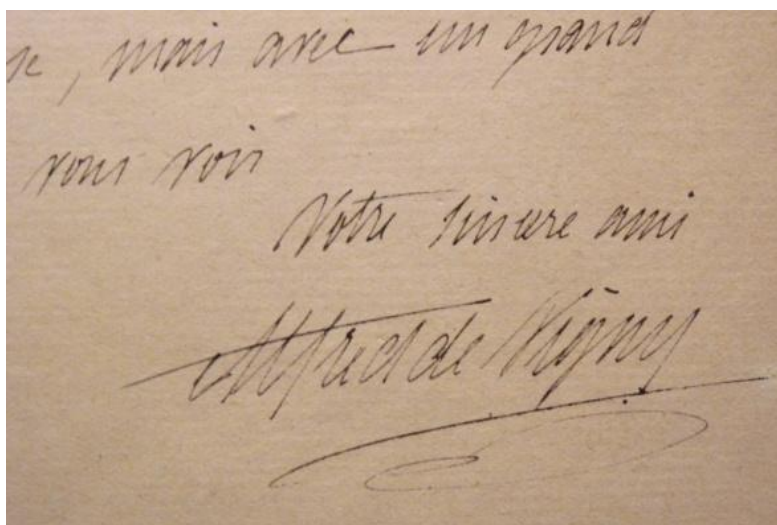 , mais avec un grand
vous voir
Votre sincere ami
Alfred de Vigny